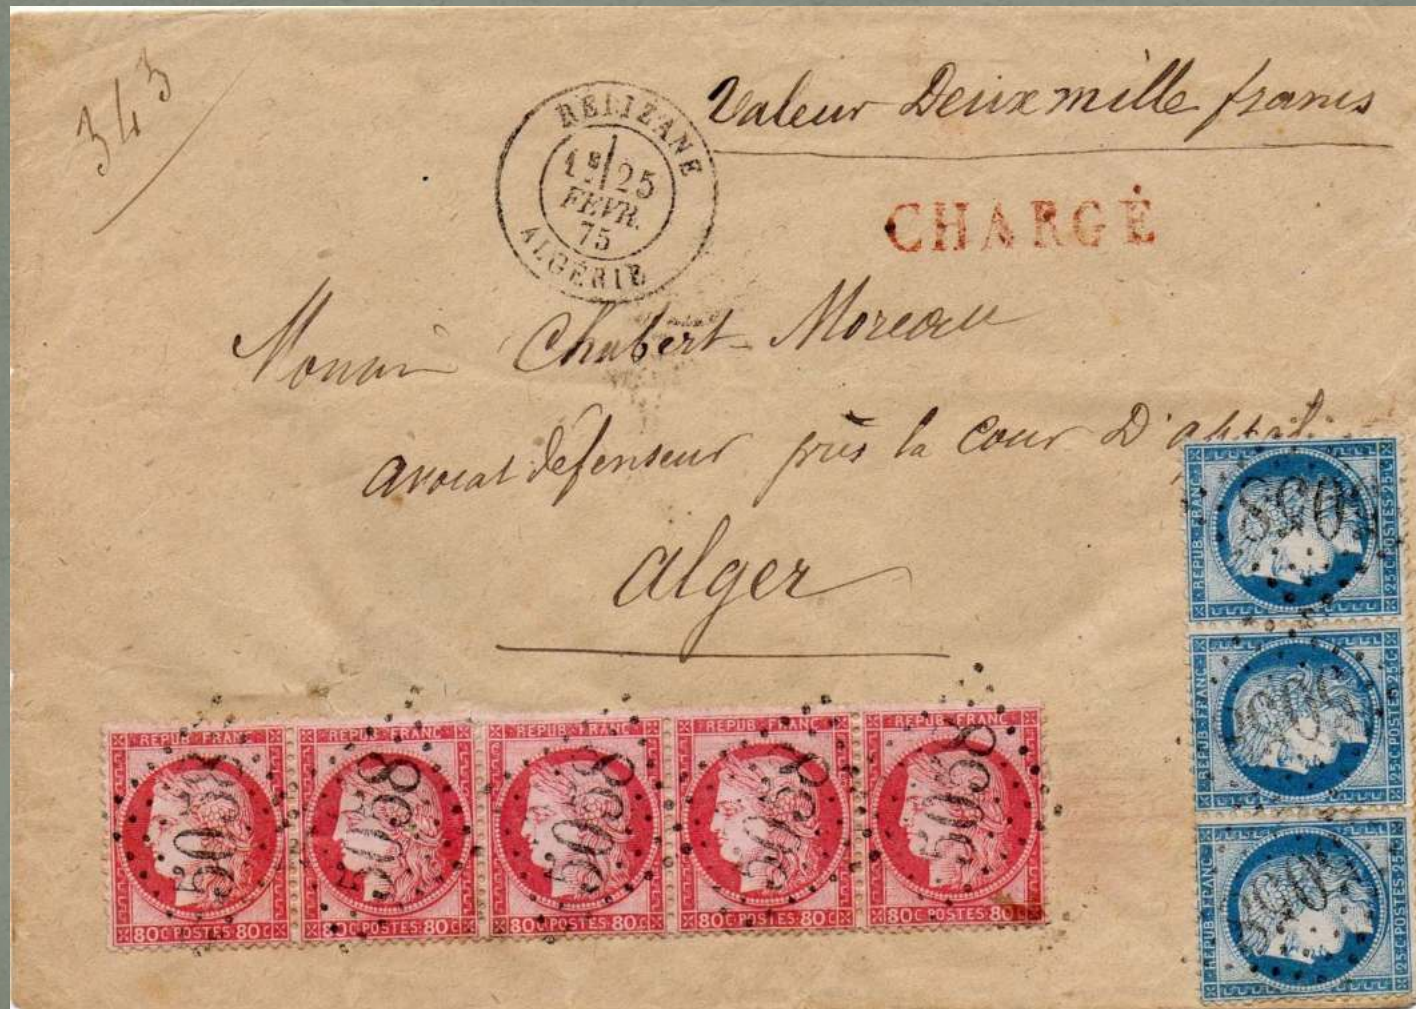 343
Valeur Deux mille francs
RELIZANE
1E 25
FEVR.
75
ALGÉRIE
CHARGÉ
Chabert-Moreau
avocat défenseur près la Cour D'appel
alger
REPUB·FRANC·
80C·POSTES·80C
5058
REPUB·FRANC·
80C·POSTES·80C
5058
REPUB·FRANC·
80C·POSTES·80C
5058
REPUB·FRANC·
80C·POSTES·80C
5058
REPUB·FRANC·
80C·POSTES·80C
5058
REPUB·FRANC·
25·C·POSTES·25·C
5058
REPUB·FRANC·
25·C·POSTES·25·C
5058
REPUB·FRANC·
25·C·POSTES·25·C
5058